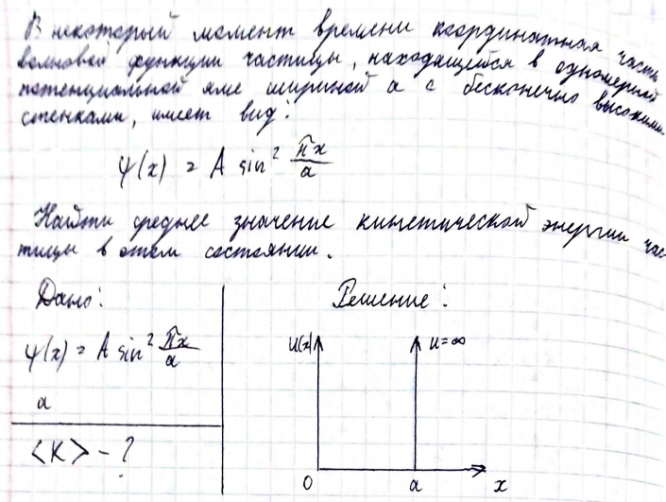 В некоторый момент времени координатная часть
волновой функции частицы, находящейся в одномерной
потенциальной яме шириной а с бесконечно высокими
стенками, имеет вид:
ψ(x) = A sin² πx/a
Найти среднее значение кинетической энергии час
тицы в этом состоянии.
Дано:
Решение:
ψ(x) = A sin² πx/a
a
<K> - ?
U(x)
U=∞
0
a
x